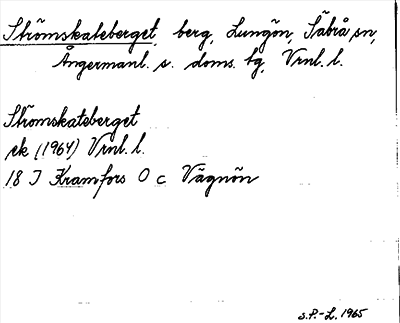 Strömskateberget, berg, Lungön, Säbrå sn,
Ångermanl. s. doms. tg, Vrnl. l.
Strömskateberget
ek (1964) Vrnl. l.
18 I Kramfors O c Vägnön
S.P.-L. 1965